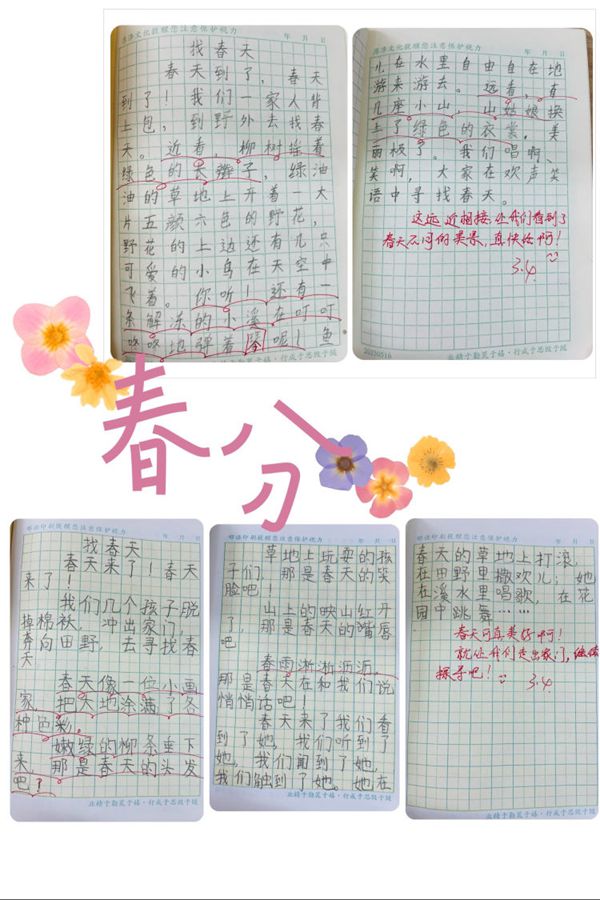 找春天
春天到了，春天
到了！我们一家人背
上包，到野外去找春
天。近看，柳树摇着
绿色的长辫子，绿油
油的草地上开着一大
片五颜六色的野花，
野花的上边还有几只
可爱的小鸟在天空中
飞着。你听！还有一
条解冻的小溪在叮叮
咚咚地弹着琴呢！鱼
业精于勤荒于嬉·行成于思毁于随
儿在水里自由自在地
游来游去。远看，有
几座小山，山姑娘换
上了绿色的衣裳，美
丽极了。我们唱啊、
笑啊，大家在欢声笑
语中寻找春天。
这远近相接让我们看到了
春天不同的美景，真快乐啊！
3.4
业精于勤荒于嬉·行成于思毁于随
春分
年 月 日
找春天
春天来了！春天
来了！
我们几个孩子脱
掉棉袄，冲出家门，
奔向田野，去寻找春
天
春天像一位小画
家，把大地涂满了各
种色彩。
嫩绿的柳条垂下
来，那是春天的头发
吧？
业精于勤荒于嬉·行成于思毁于随
年 月 日
草地上玩耍的孩
子们，那是春天的笑
脸吧！
山上的映山红开
了，那是春天的嘴唇
吧
春雨淅淅沥沥，
那是春天在和我们说
悄悄话吧！
春天来了我们看
到了她，我们听到了
她，我们闻到了她，
我们触到了她。她在
业精于勤荒于嬉·行成于思毁于随
年 月 日
春天的草地上打滚，
在田野里撒欢儿；她
在溪水里唱歌，在花
园中跳舞……
春天可真美好啊！
就让我们走出家门，继续
探寻吧！
3.4
业精于勤荒于嬉·行成于思毁于随